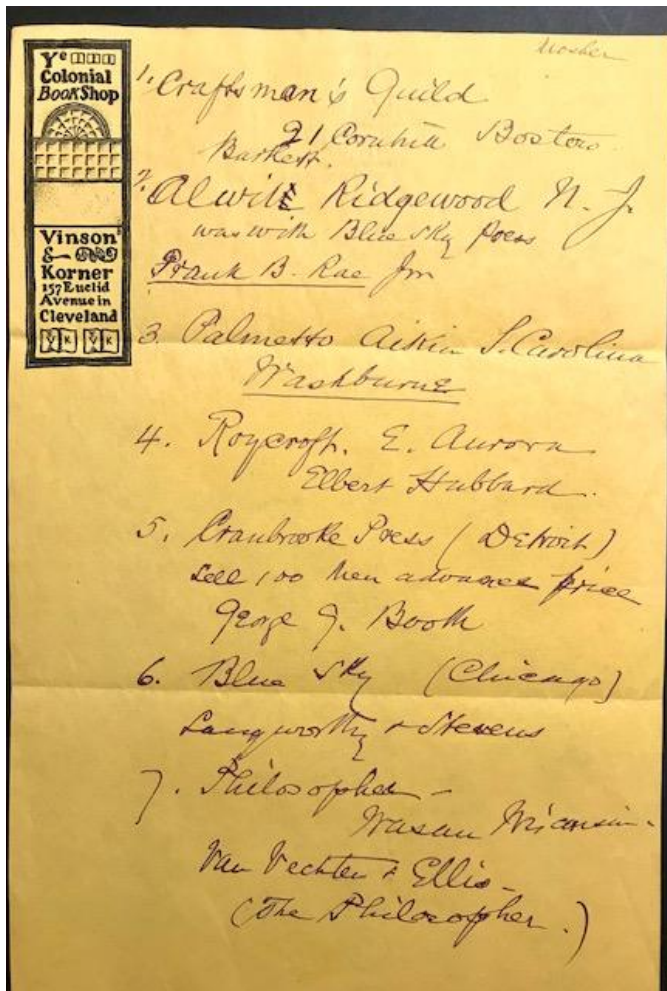 Mosher
Ye
Colonial
Book Shop
Vinson
&
Korner
157 Euclid
Avenue in
Cleveland
V K V K
1. Craftsman's Guild
21 Cornhill Boston
2. Alwil Ridgewood N. J.
was with Blue Sky Press
Frank B. Rae Jnr
3. Palmetto Aikin S. Carolina
Washburne
4. Roycroft. E. Aurora
Elbert Hubbard.
5. Cranbrooke Press (Detroit)
Sell 100 then advance price
George G. Booth
6. Blue Sky (Chicago)
Langworthy & Stevens
7. Philosopher -
Wasau Wisconsin -
Van Vechten & Ellis -
(The Philosopher.)